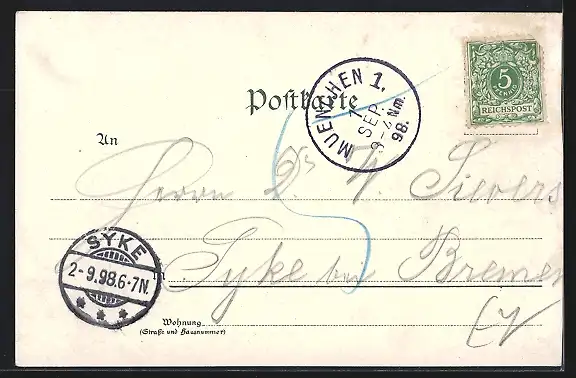 Postkarte
MUENCHEN 1.
1
SEP.
98.
Nm.
5
REICHSPOST
An
Herrn Dr. Sievers
SYKE
2-9.98.6-7N.
in Syke bei Bremen
Wohnung
(Straße und Hausnummer)